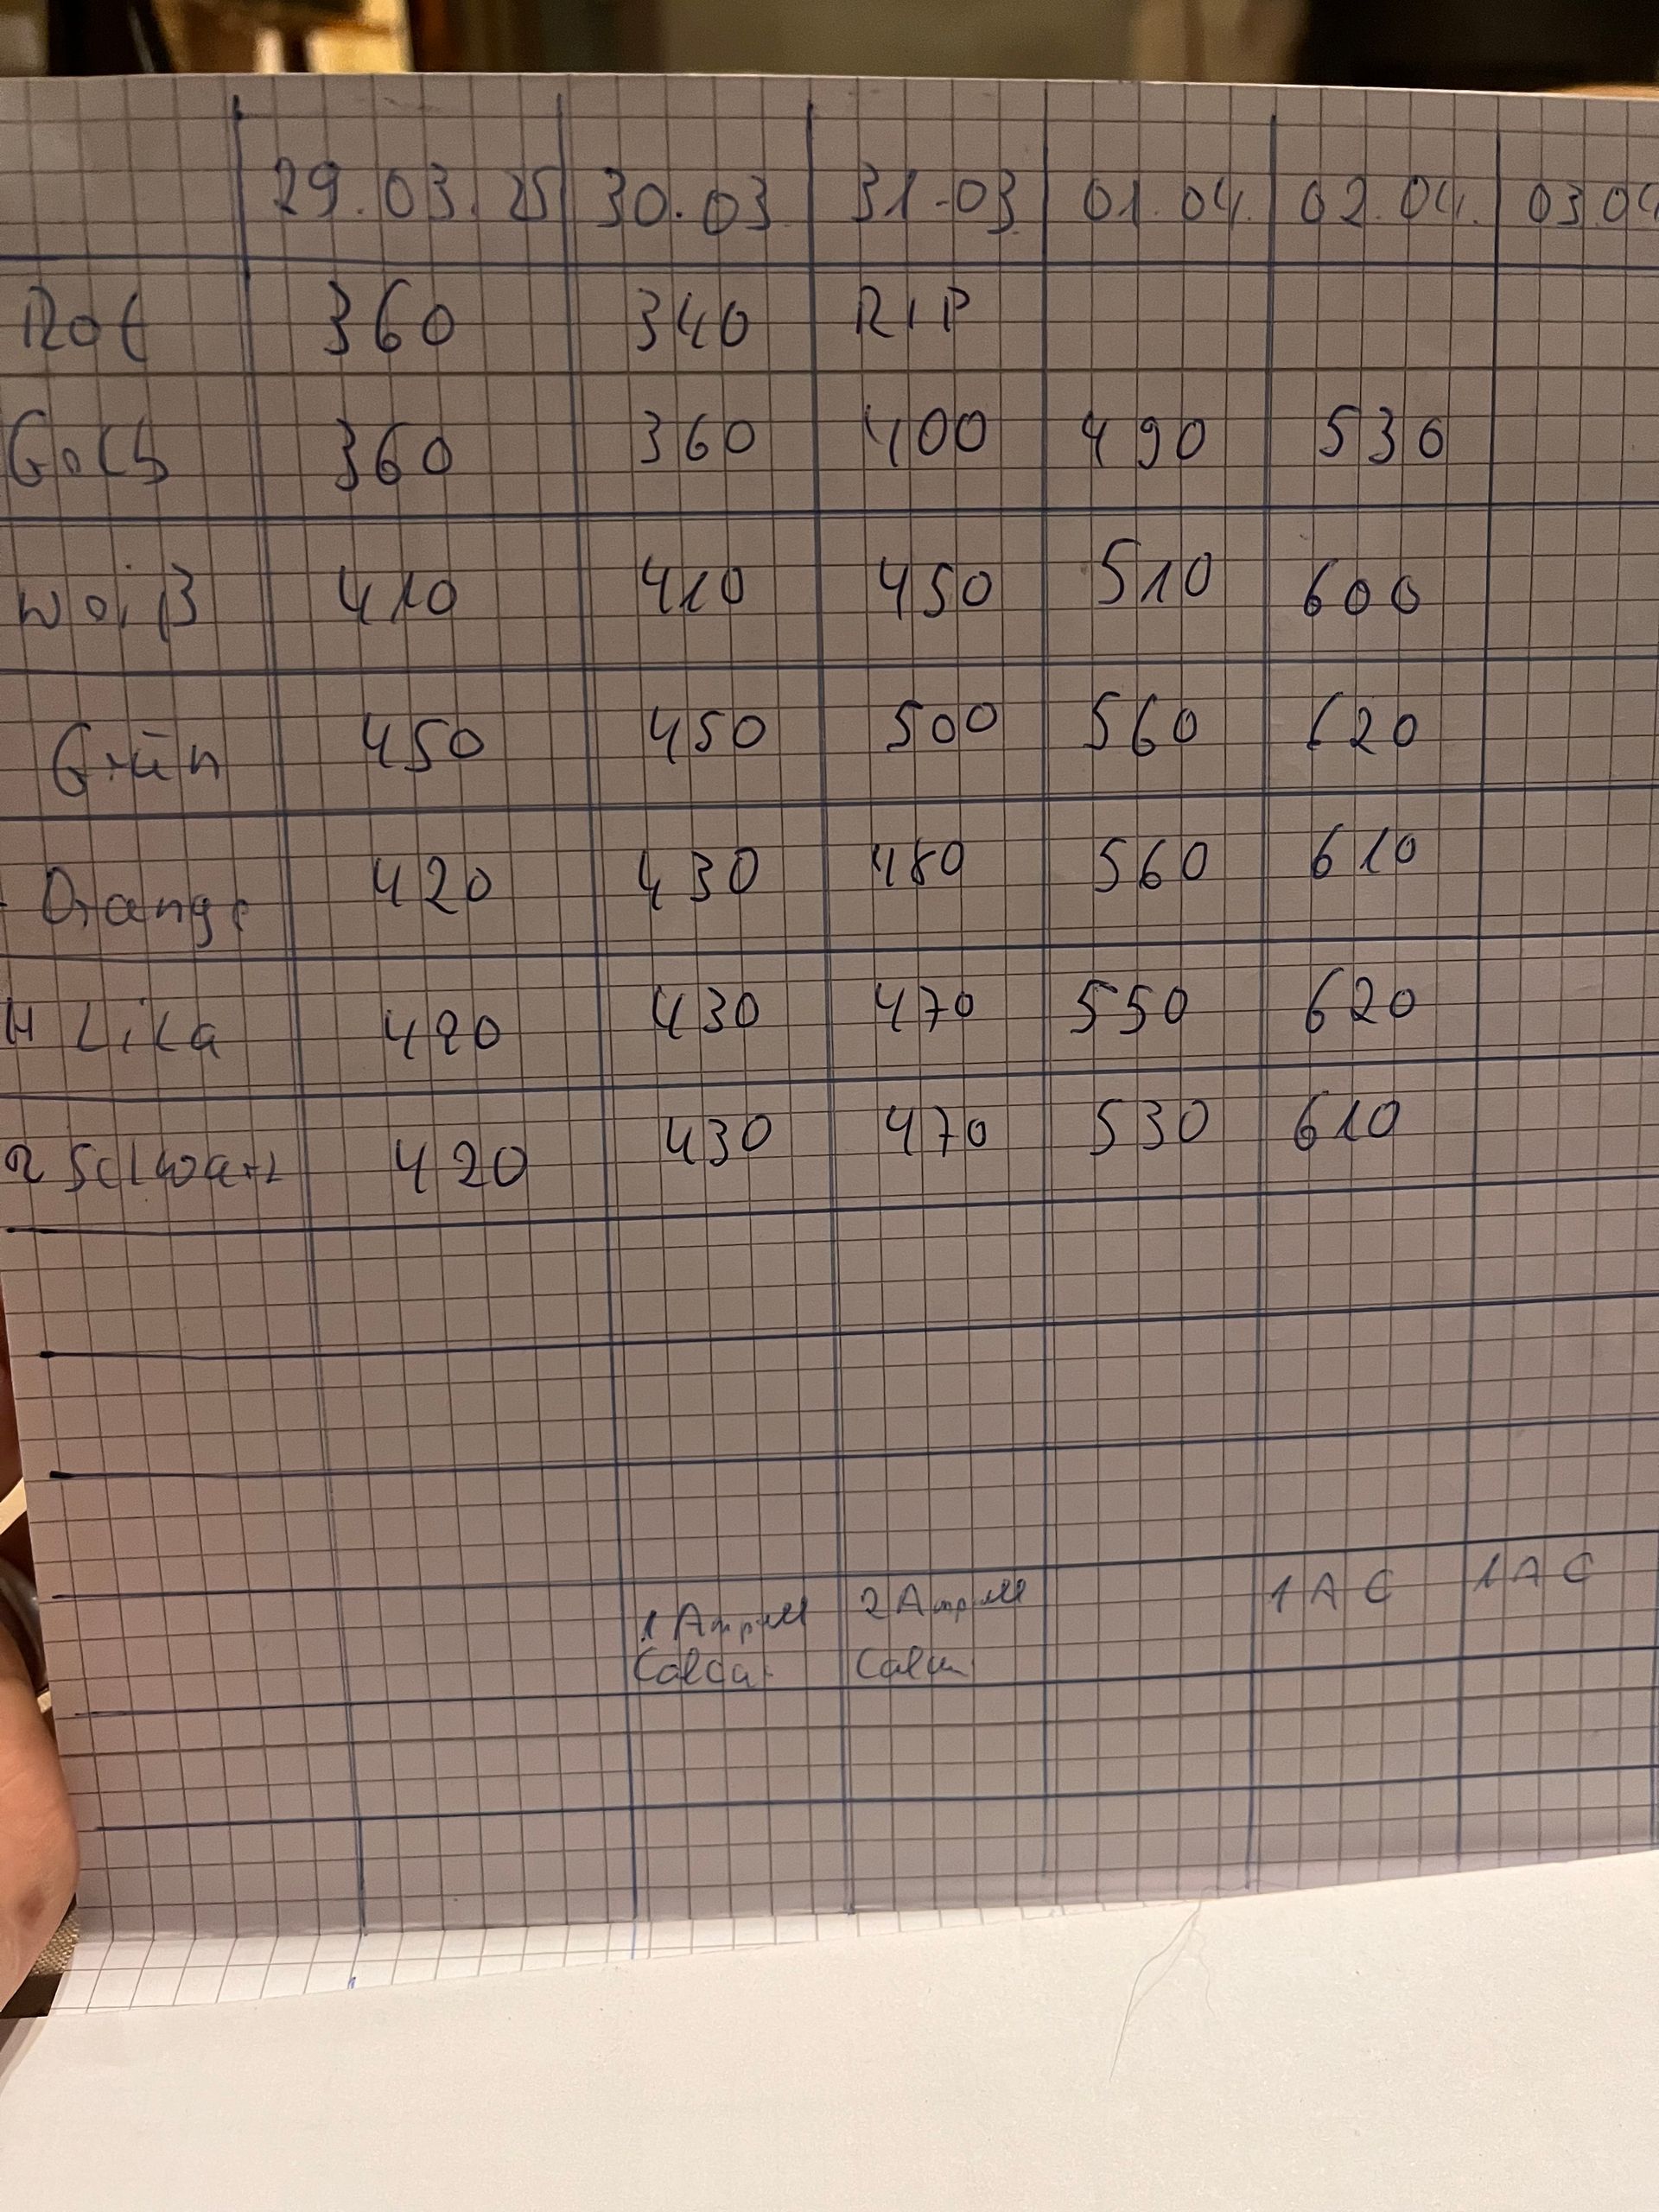 29.03.25 30.03 31.03 01.04. 02.04. 03.04
Rot 360 340 RIP
Gelb 360 360 400 490 530
Weiß 410 410 450 510 600
Grün 450 450 500 560 620
Orange 420 430 480 560 610
Lila 420 430 470 550 620
Schwarz 420 430 470 530 610
1 Ampull 2 Ampull 1 A C 1 A C